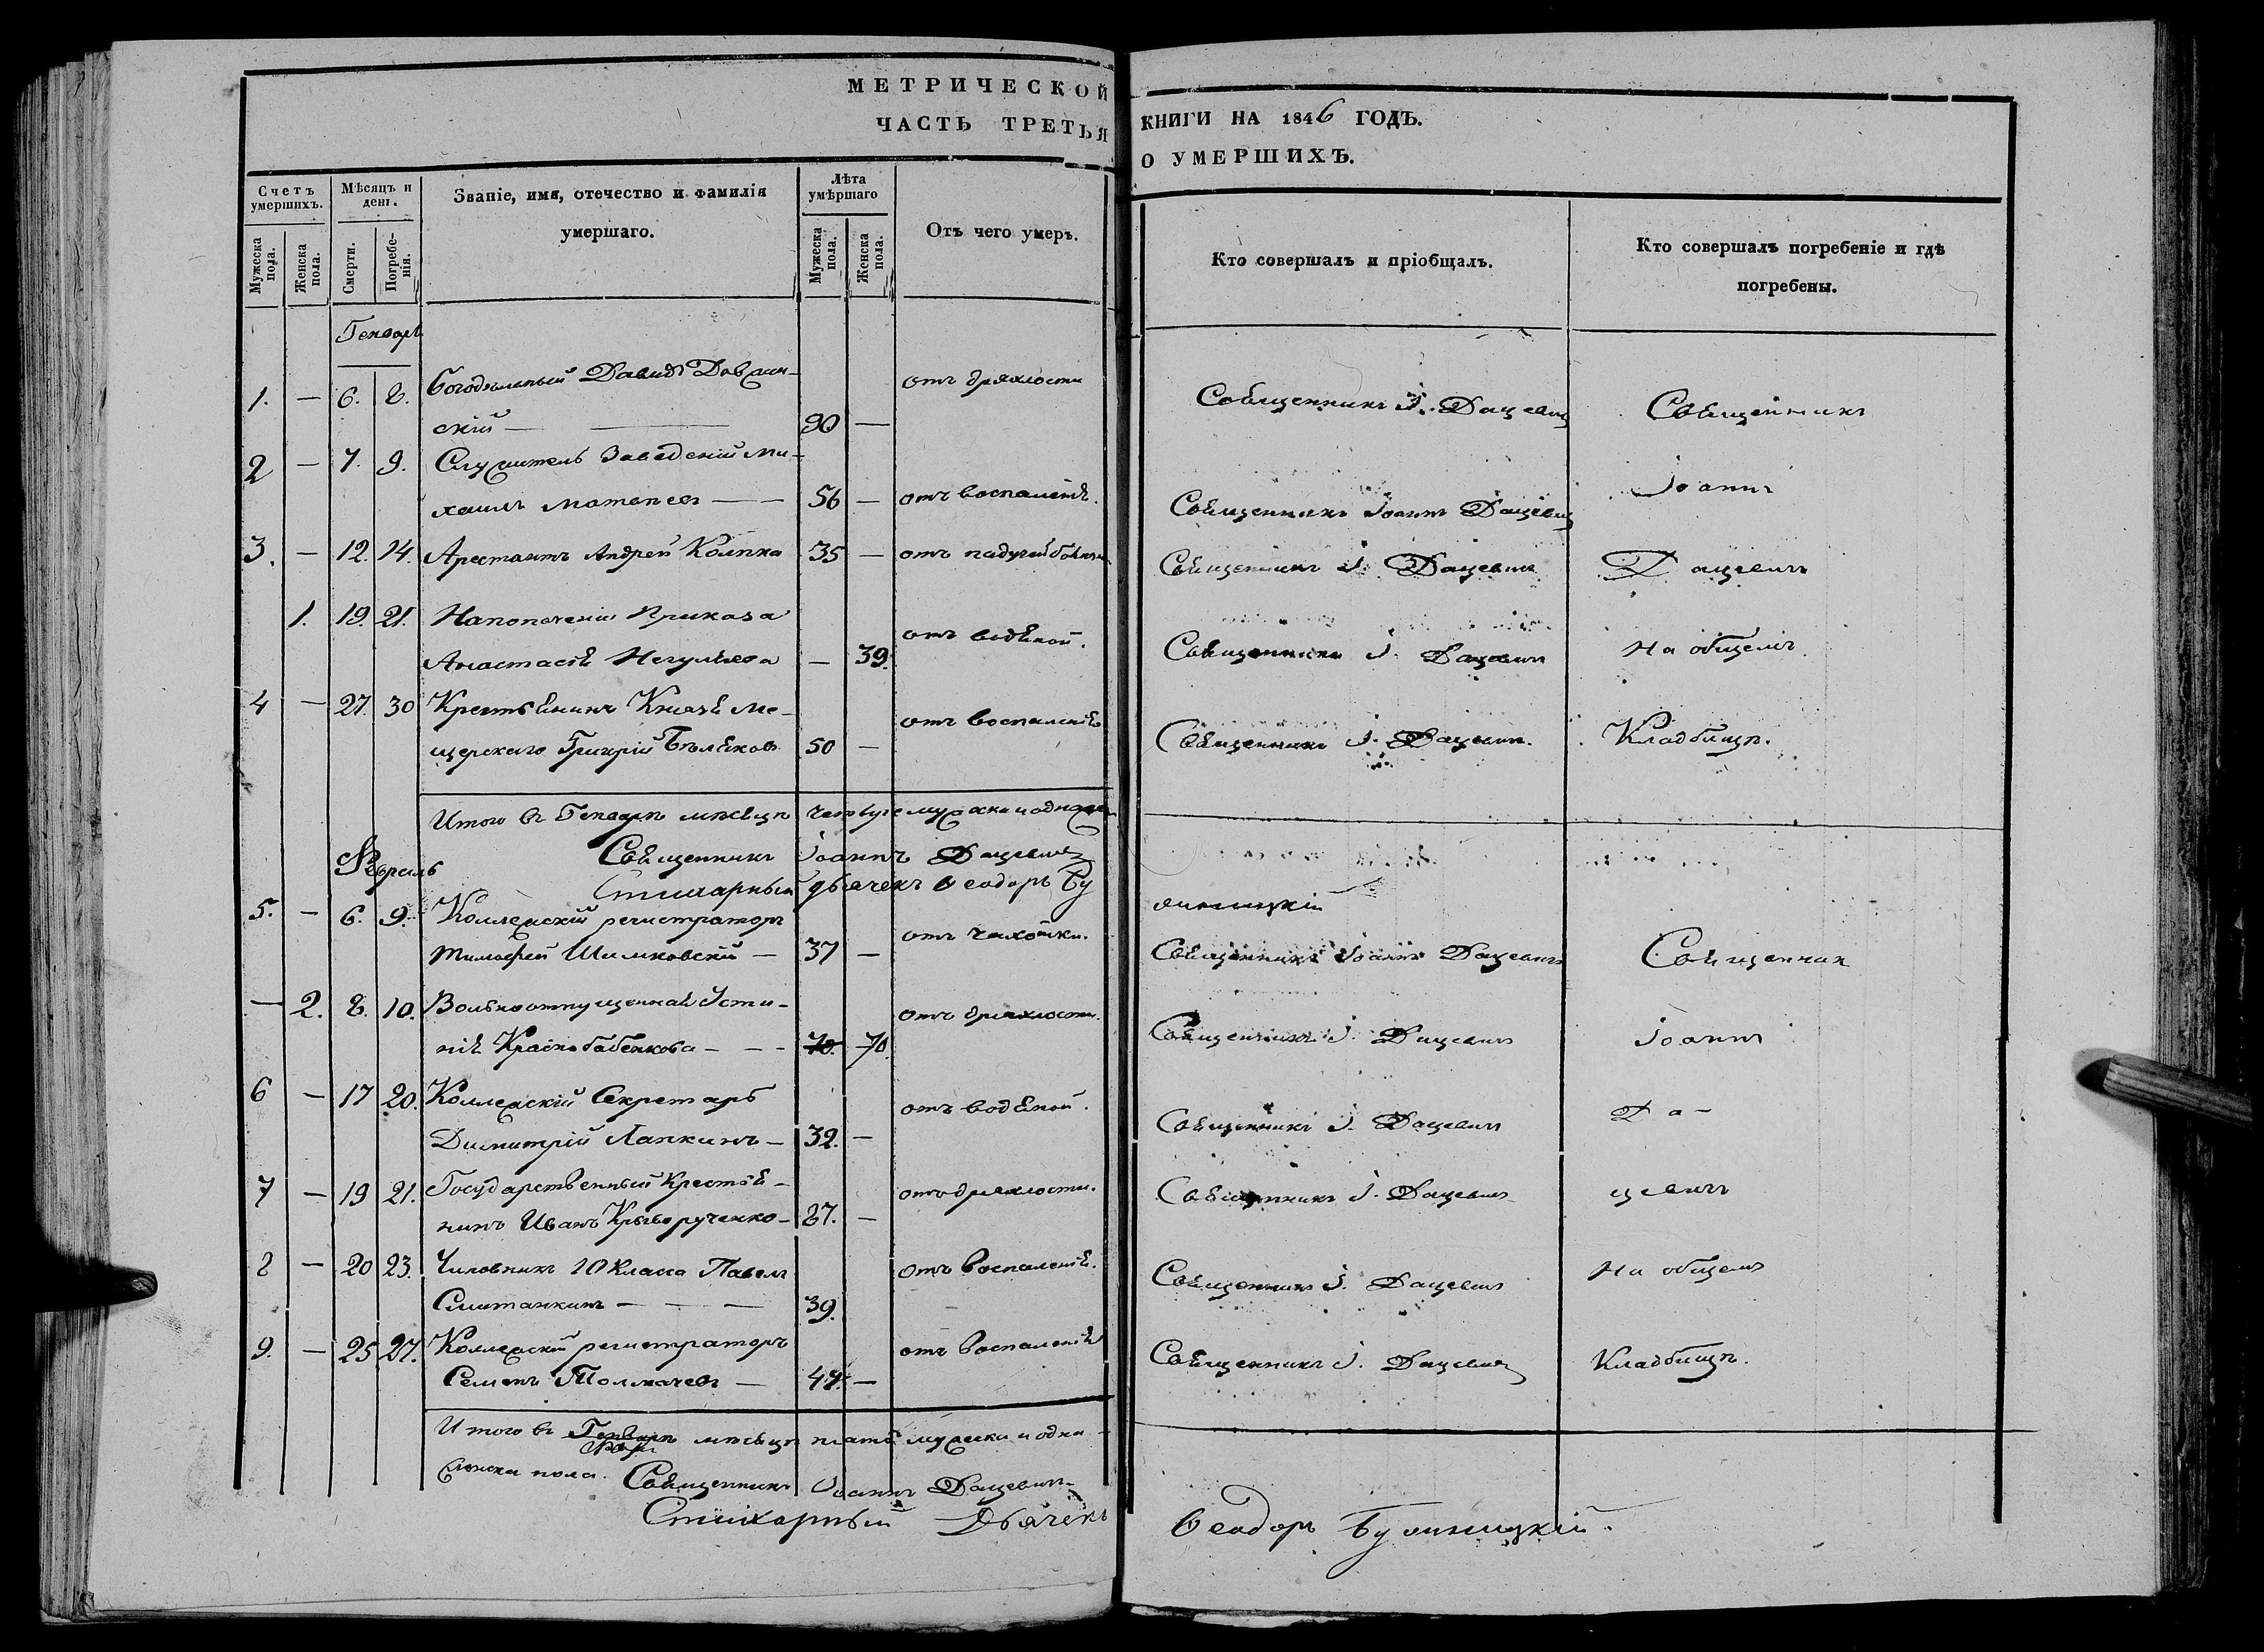 МЕТРИЧЕСКОЙ КНИГИ НА 1846 ГОДЪ.
ЧАСТЬ ТРЕТЬЯ О УМЕРШИХЪ.
Счетъ умершихъ.
Мужеска пола.
Женска пола.
Мѣсяцъ и день.
Смерти.
Погребенія.
Званіе, имя, отечество и фамилія
умершаго.
Лѣта умѣршаго
Мужеска пола.
Женска пола.
Отъ чего умеръ.
Кто совершалъ и пріобщалъ.
Кто совершалъ погребеніе и гдѣ
погребены.
Генварь
1. — 6. 8. Богодѣльный Давидъ отъ дряхлости Священникъ І. Дацевич Священникъ
скій — 90 —
2 — 7. 9. Служитель Заведеній Ми-
хаилъ Матвѣев — 56 — отъ воспаленія. Священникъ Іоаннъ Дацевич Іоаннъ
3. — 12. 14. Арестантъ Андрей 35 — отъ падучей Священникъ І. Дацевич Дацевичъ
1. 19. 21. Напопеченіи Приказа отъ водяной.
Анастасія — 39. Священникъ І. Дацевич На общемъ
4 — 27. 30 Крестьянинъ Князя Ме- отъ воспаленія
щерскаго Григорій Бѣляков 50 — Священникъ І. Дацевич. Кладбищѣ.
Итого въ Генварѣ мѣсяцѣ четыре мужска и одна
Священникъ Іоаннъ Дацевич
Февраль
Стихарный дьячекъ Ѳеодоръ
5. — 6. 9. Колежскій регистраторъ отъ чахотки.
Тимофей Шимковскій — 37 — Священникъ Іоаннъ Дацевичъ Священник
— 2. 8. 10. Вольноотпущенная Усти- отъ дряхлости.
нія Краснобабенкова — 70. 70. Священникъ І. Дацевич Іоаннъ
6 — 17 20. Колежскій Секретарь отъ водяной.
Димитрій Лапкинъ — 32. — Священникъ І. Дацевич Да-
7 — 19 21. Государственный Крестья- отъ дряхлости. Священникъ І. Дацевич цевичъ
нинъ Иванъ Криворученко — 87. —
8 — 20 23. Чиновникъ 10 Класса Павелъ отъ воспаленія. Священникъ І. Дацевич На общемъ
39.
9. — 25 27. Колежскій регистраторъ отъ воспаленія Священникъ І. Дацевич Кладбищѣ.
Семенъ Толмачевъ — 47. —
Итого въ Генварѣ мѣсяцѣ пять мужска и одна
женска пола. Священникъ Іоаннъ Дацевич
Стихарный Дьячекъ Ѳеодоръ